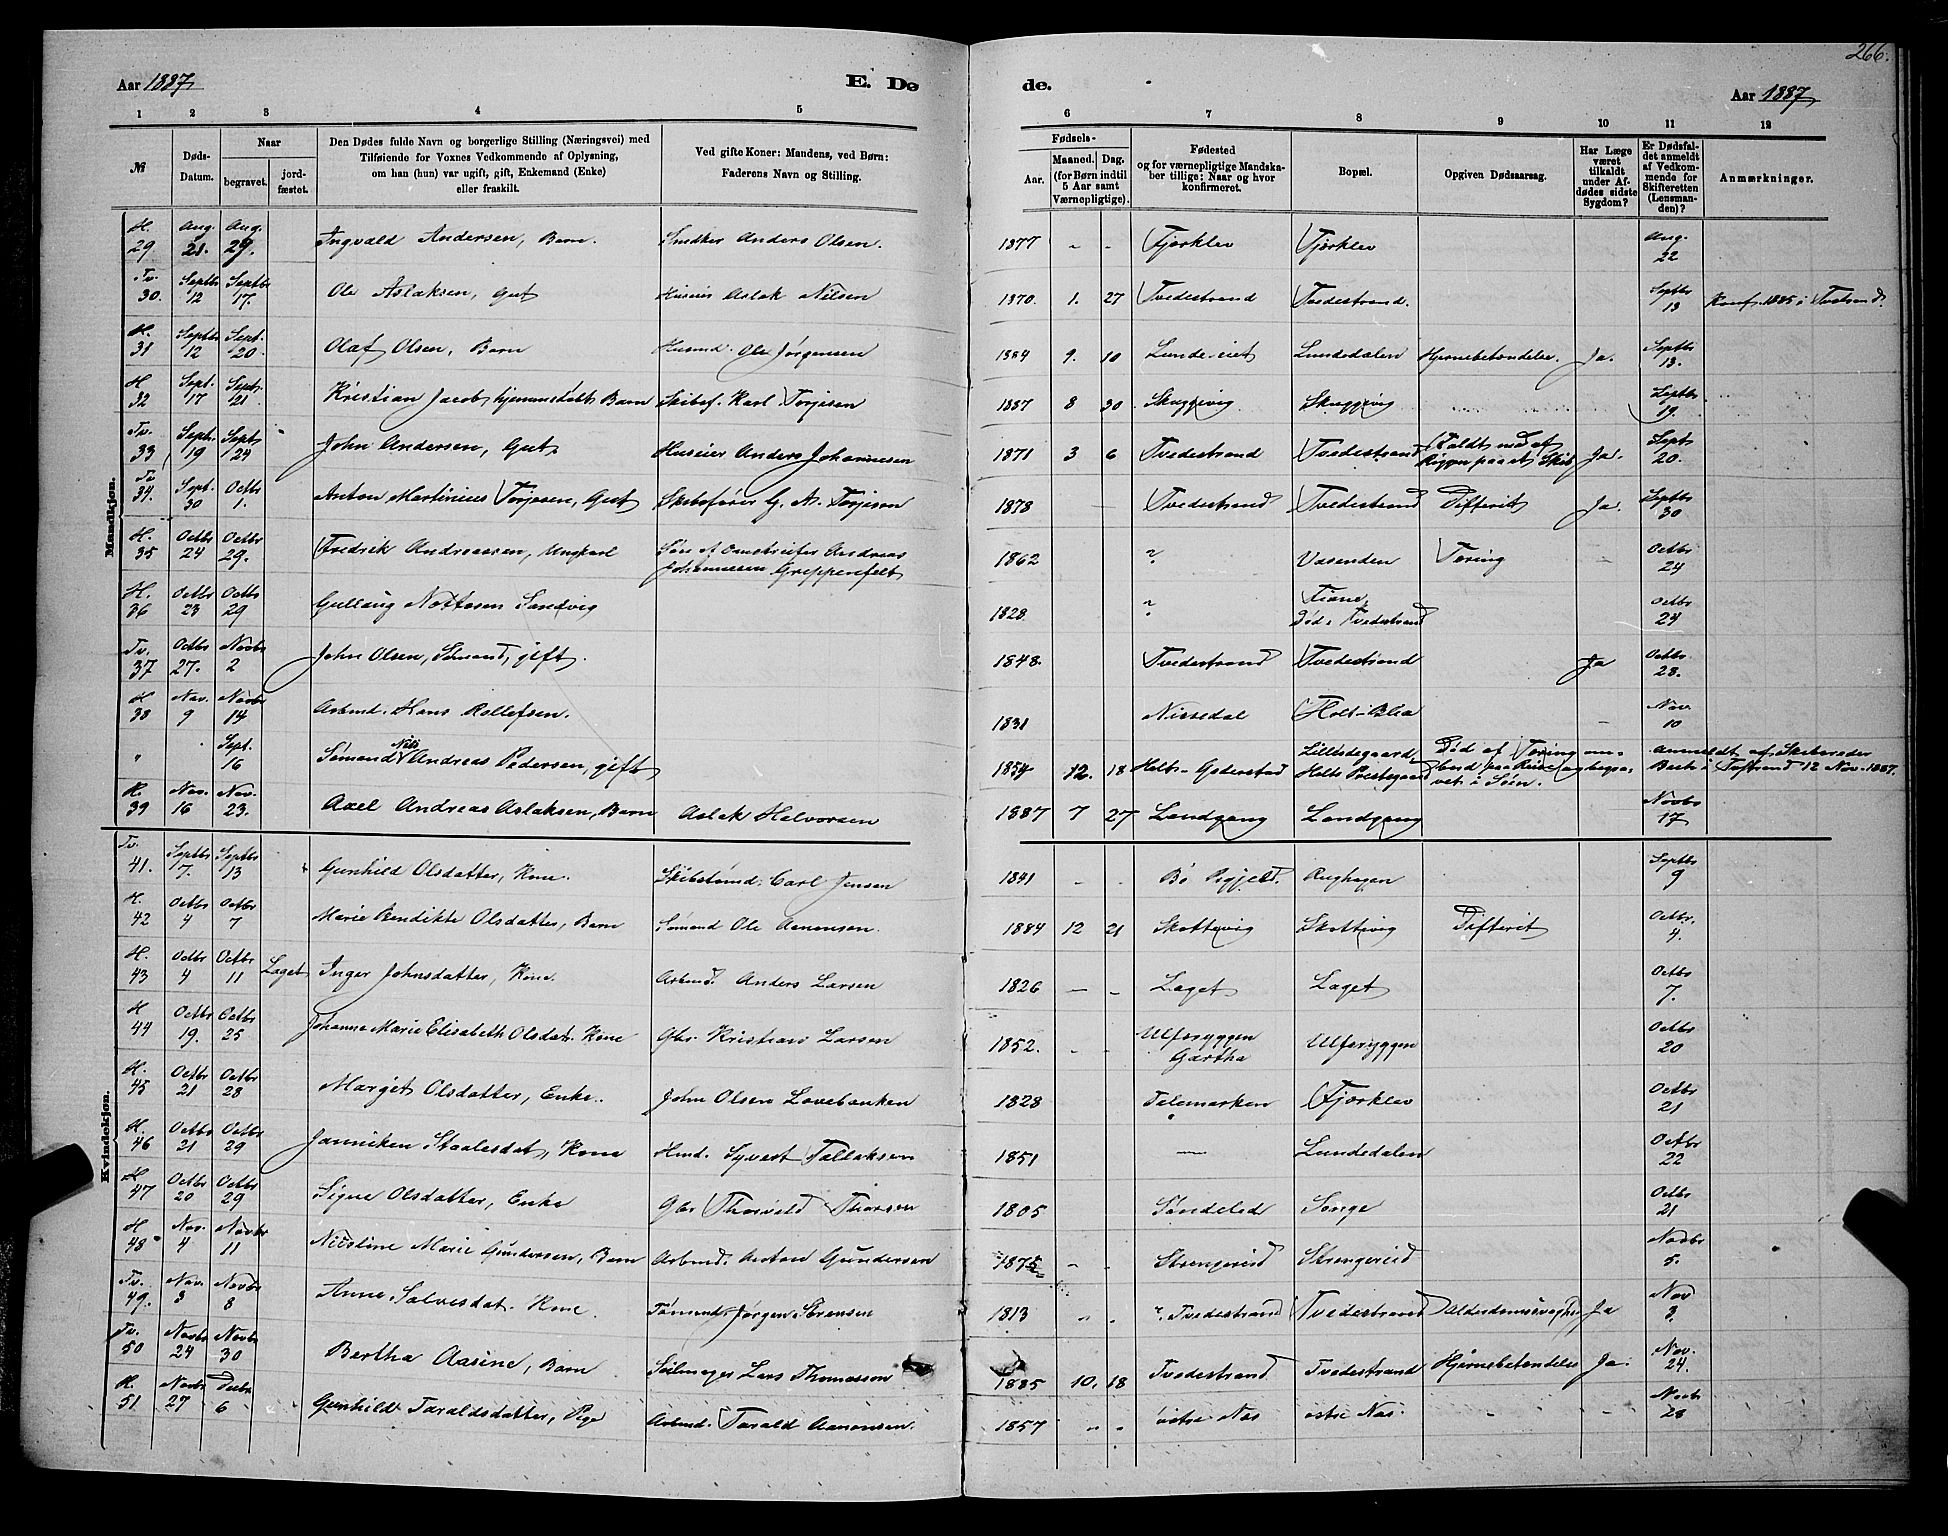 266.
Aar 1887
E. Dø
de.
Aar 1887
1 2 3 4 5 6 7 8 9 10 11 12
№
Døds-Datum.
Naar
begravet.
jordfæstet.
Den Dødes fulde Navn og borgerlige Stilling (Næringsvei) med
Tilføiende for Voxnes Vedkommende af Oplysning,
om han (hun) var ugift, gift, Enkemand (Enke)
eller fraskilt.
Ved gifte Koner: Mandens, ved Børn:
Faderens Navn og Stilling.
Fødsels-
Aar.
Maaned. Dag.
(for Børn indtil
5 Aar samt
Værnepligtige).
Fødested
og for værnepligtige Mandskaber tillige: Naar og hvor
konfirmeret.
Bopæl.
Opgiven Dødsaarsag.
Har Læge
været
tilkaldt
under Afdødes sidste
Sygdom?
Er Dødsfaldet anmeldt
af Vedkommende for
Skifteretten
(Lensmanden)?
Anmærkninger.
Mandkjøn.
H. 29 Aug. 21. Aug. 29. Ingvald Andersen, Barn. Snedker Anders Olsen. 1877 - - Fjærklev Fjærklev Aug. 22
Tv. 30. Septbr 12 Septbr 17. Ole Aslaksen, Gut Huseier Aslak Nilsen 1870. 1. 27 Tvedestrand Tvedestrand. Septbr 13 Konf. 1885 i Tvestrand.
H. 31 Septbr 12 Sept. 20 Olaf Olsen, Barn Husmd. Ole Jørgensen 1884 9. 10 Lunde-eiet Lundedalen Hjernebetændelse. Ja. Septbr 13.
H. 32 Sept. 17 Sept. 21 Kristian Jacob, hjemmedøbt Barn Skibsf. Karl Torjesen 1887 8 30 Skuggevig Skuggevig Septbr 19.
Tv. 33 Sept. 19 Sept 24 John Andersen, Gut. Huseier Anders Johannesen 1871 3 6 Tvedestrand Tvedestrand Faldt ned af Riggen paa et Skib Ja. Sept 20.
Tv 34. Sept. 30 Octbr 1. Anton Martinius Torjesen, Gut Skibsfører G. A. Torjesen 1878 Tvedestrand Tvedestrand Difterit Ja. Septbr 30
H. 35 Octbr 24 Octbr 29. Fredrik Andreassen, Ungkarl Søn af Andreas Johannesen Greppenfelt 1862 " Vasenden Tæring - Octbr 24
H. 36 Octbr 23 Octbr 29 Gullaug Nottosen Sandvig 1828 " Fiane, Død i Tvedestrand Octbr 24
Tv. 37 Octbr 27. Novbr 2 John Olsen, Sømand, gift. 1848. Tvedestrand Tvedestrand Ja Octbr. 28.
H 38 Nov. 9 Novbr 14 Arbmd. Hans Rollefsen. 1831 Nissedal Holt-Blea - Nov. 10
" Sept. 16 Sømand Nils Andreas Pedersen, gift 1854 12. 18 Holt-Goderstad Lillidegaard Holts Prestegaard Død af Tæring ombord paa Reise og begravet i Søen. Anmeldt af Skibsreder i Tvestrand 12 Nov. 1887.
H. 39 Nov. 16 Nov. 23. Axel Andreas Aslaksen, Barn Aslak Halvorsen 1887 7 27 Landgang Landgang Novbr 17
Kvindekjøn.
Tv. 41. Septbr 7. Septbr 13 Gunhild Olsdatter, Kone. Skibstømd. Carl Jensen 1841 - - Bø Pgjeld. Aughagen Septbr 9
H. 42 Octbr 4 Octbr 7 Marie Bendikte Olsdatter, Barn Sømand Ole Aanonsen. 1884 12 21 Skottevig Skottevig Difterit Octbr. 4.
H. 43 Octbr 4 Octbr 11 Laget Inger Johnsdatter, Kone. Arbmd. Anders Larsen 1826 - - Laget Laget Octbr 7.
H 44 Octbr 19. Octbr 25 Johanne Marie Elisabeth Olsdat. Kone Gbr. Kristian Larsen 1852. - - Ulfsryggen Gartha Ulfsryggen Octbr 20
H. 45 Octbr 21 Octbr 28 Marget Olsdatter, Enke. John Olsen Lovebanken 1828 Telemarken Fjærklev Octbr 21
H. 46 Octbr 21 Octbr 29 Janniken Staalesdat, Kone Hmd. Syvert Tallaksen 1851 - Lundedalen Octbr 22
H 47 Octbr 20 Octbr 29 Signe Olsdatter, Enke Gbr Thorvald Thorsen 1805 Søndeled Songe Octbr 21
H 48 Nov. 4 Novbr 11 Nicoline Marie Gundersen, Barn Arbmd. Anton Gundersen 1875 - - Strengereid Strengereid Novbr 5.
Tv. 49. Nov. 3 Novbr 8 Anne Salvesdat. Kone Tømmermd. Jørgen Sørensen 1813 " " " Tvedestrand Tvedestrand Alderdomssvaghed Ja Nov 3.
Tv. 50 Novbr 24 Novbr 30 Bertha Aasine, Barn Seilmager Lars Thomassen 1885 10. 18 Tvedestrand Tvedestrand Hjernebetændelse Ja. Nov. 24.
H. 51 Novbr 27 Decbr 6 Gunhild Taraldsdatter, Pige Arbmd. Tarald Aanonsen. 1857 " " østre Næs østre Næs. - - Novbr 28